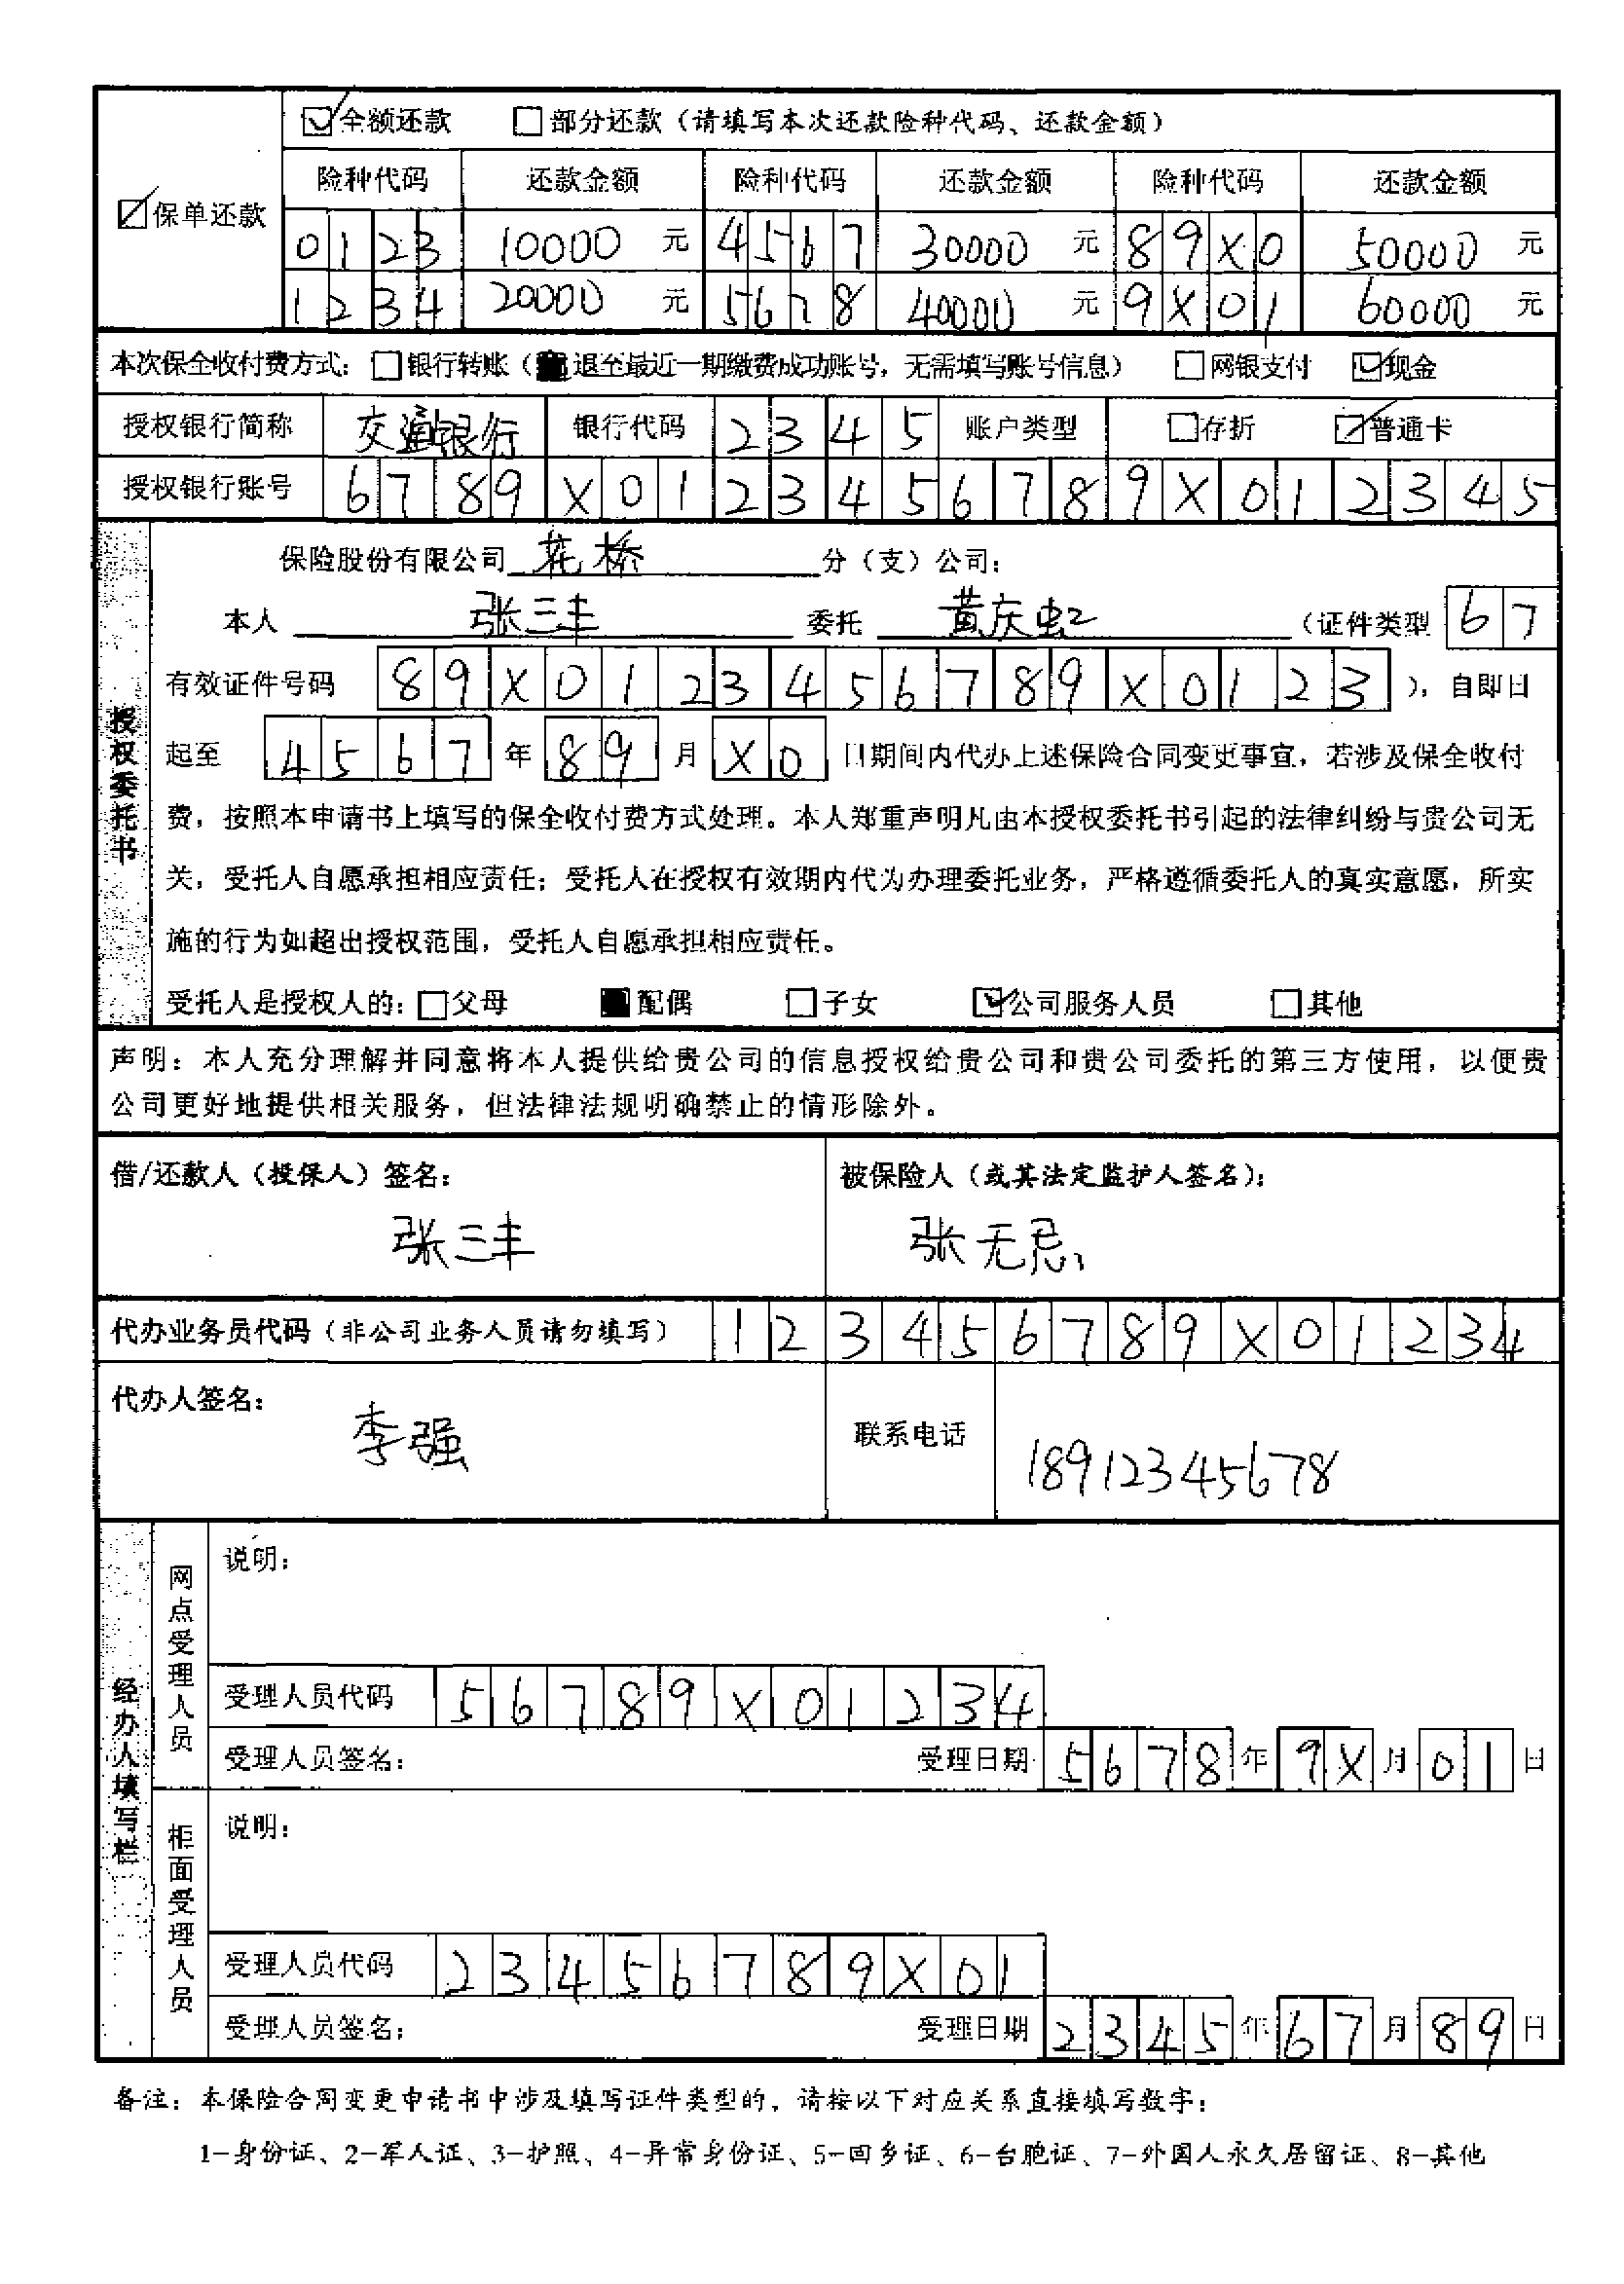 ☑全额还款 □部分还款（请填写本次还款险种代码、还款金额）
险种代码 还款金额 险种代码 还款金额 险种代码 还款金额
☑保单还款
0123 10000 元 4567 30000 元 89X0 50000 元
1234 20000 元 5678 40000 元 9X01 60000 元
本次保全收付费方式：□银行转账（■退至最近一期缴费成功账号，无需填写账号信息） □网银支付 ☑现金
授权银行简称 交通银行 银行代码 2345 账户类型 □存折 ☑普通卡
授权银行账号 6789X0123456789X012345
保险股份有限公司 花桥 分（支）公司：
本人 张三丰 委托 黄庆虹 （证件类型 67
有效证件号码 89X0123456789X0123 ），自即日
起至 4567 年 89 月 X0 日期间内代办上述保险合同变更事宜，若涉及保全收付
费，按照本申请书上填写的保全收付费方式处理。本人郑重声明凡由本授权委托书引起的法律纠纷与贵公司无
关，受托人自愿承担相应责任；受托人在授权有效期内代为办理委托业务，严格遵循委托人的真实意愿，所实
施的行为如超出授权范围，受托人自愿承担相应责任。
受托人是授权人的：□父母 ■配偶 □子女 ☑公司服务人员 □其他
授权委托书
声明：本人充分理解并同意将本人提供给贵公司的信息授权给贵公司和贵公司委托的第三方使用，以便贵
公司更好地提供相关服务，但法律法规明确禁止的情形除外。
借/还款人（投保人）签名： 被保险人（或其法定监护人签名）：
张三丰 张无忌
代办业务员代码（非公司业务人员请勿填写） 123456789X01234
代办人签名： 李强 联系电话 18912345678
经办人填写栏
网点受理人员
说明：
受理人员代码 56789X01234
受理人员签名： 受理日期 5678 年 9X 月 01 日
柜面受理人员
说明：
受理人员代码 23456789X01
受理人员签名： 受理日期 2345 年 67 月 89 日
备注：本保险合同变更申请书中涉及填写证件类型的，请按以下对应关系直接填写数字：
1-身份证、2-军人证、3-护照、4-异常身份证、5-回乡证、6-台胞证、7-外国人永久居留证、8-其他